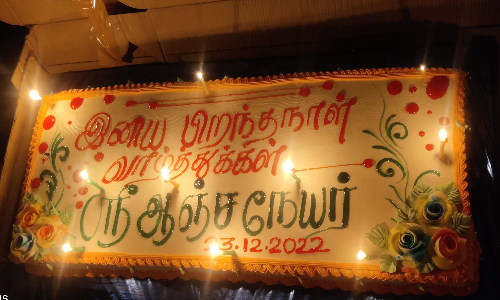 இனிய பிறந்தநாள்
வாழ்த்துக்கள்
ஸ்ரீ ஆஞ்சநேயர்
23.12.2022